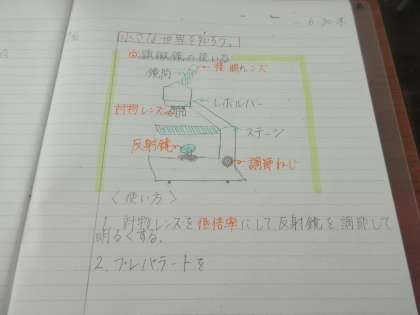 小さな世界を知ろう。
顕微鏡の使い方
接眼レンズ
鏡筒
レボルバー
対物レンズ
ステージ
反射鏡
調節ねじ
〈使い方〉
1. 対物レンズを低倍率にして反射鏡を調節して
明るくする。
2. プレパラートを